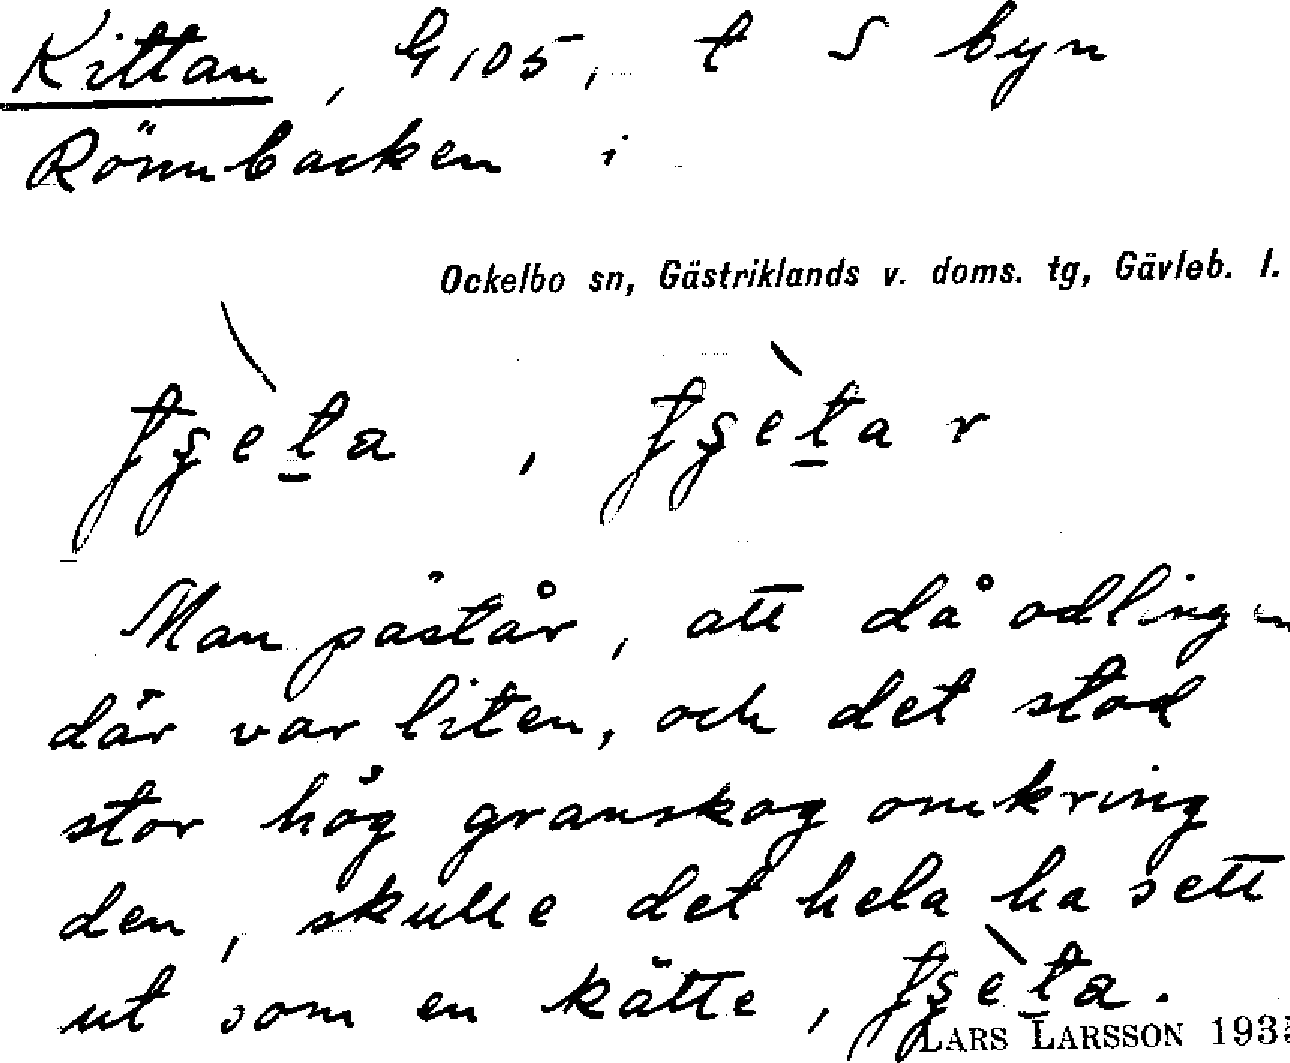 Kittan, G105, t S byn
Rönnbacken i
Ockelbo sn, Gästriklands v. doms. tg, Gävleb. l.
Man påstår, att då odlingen
där var liten, och det stod
stor hög granskog omkring
den, skulle det hela ha sett
ut som en kätte,
LARS LARSSON